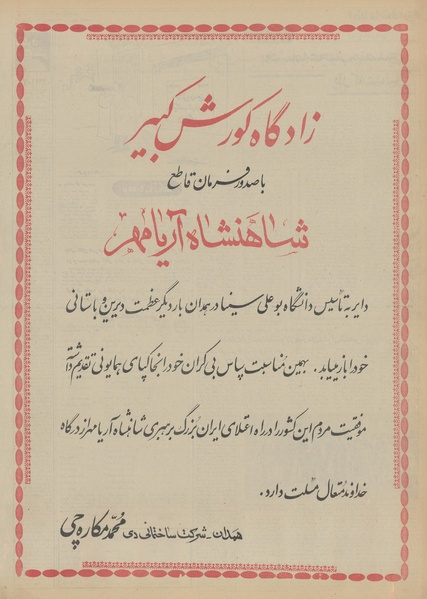 زادگاه کورش کبیر
با صدور فرمان قاطع
شاهنشاه آریامهر
دایر به تأسیس دانشگاه بوعلی سینا در همدان بار دیگر عظمت دیرین و باستانی
خود را باز مییابد. بهمین مناسبت سپاس بی کران خود را بخاکپای همایونی تقدیم داشته
موفقیت مردم این کشور را در راه اعتلای ایران بزرگ برهبری شاهنشاه آریامهر از درگاه
خداوند متعال مسئلت دارد.
همدان - شرکت ساختمانی دی محمد مکاره چی